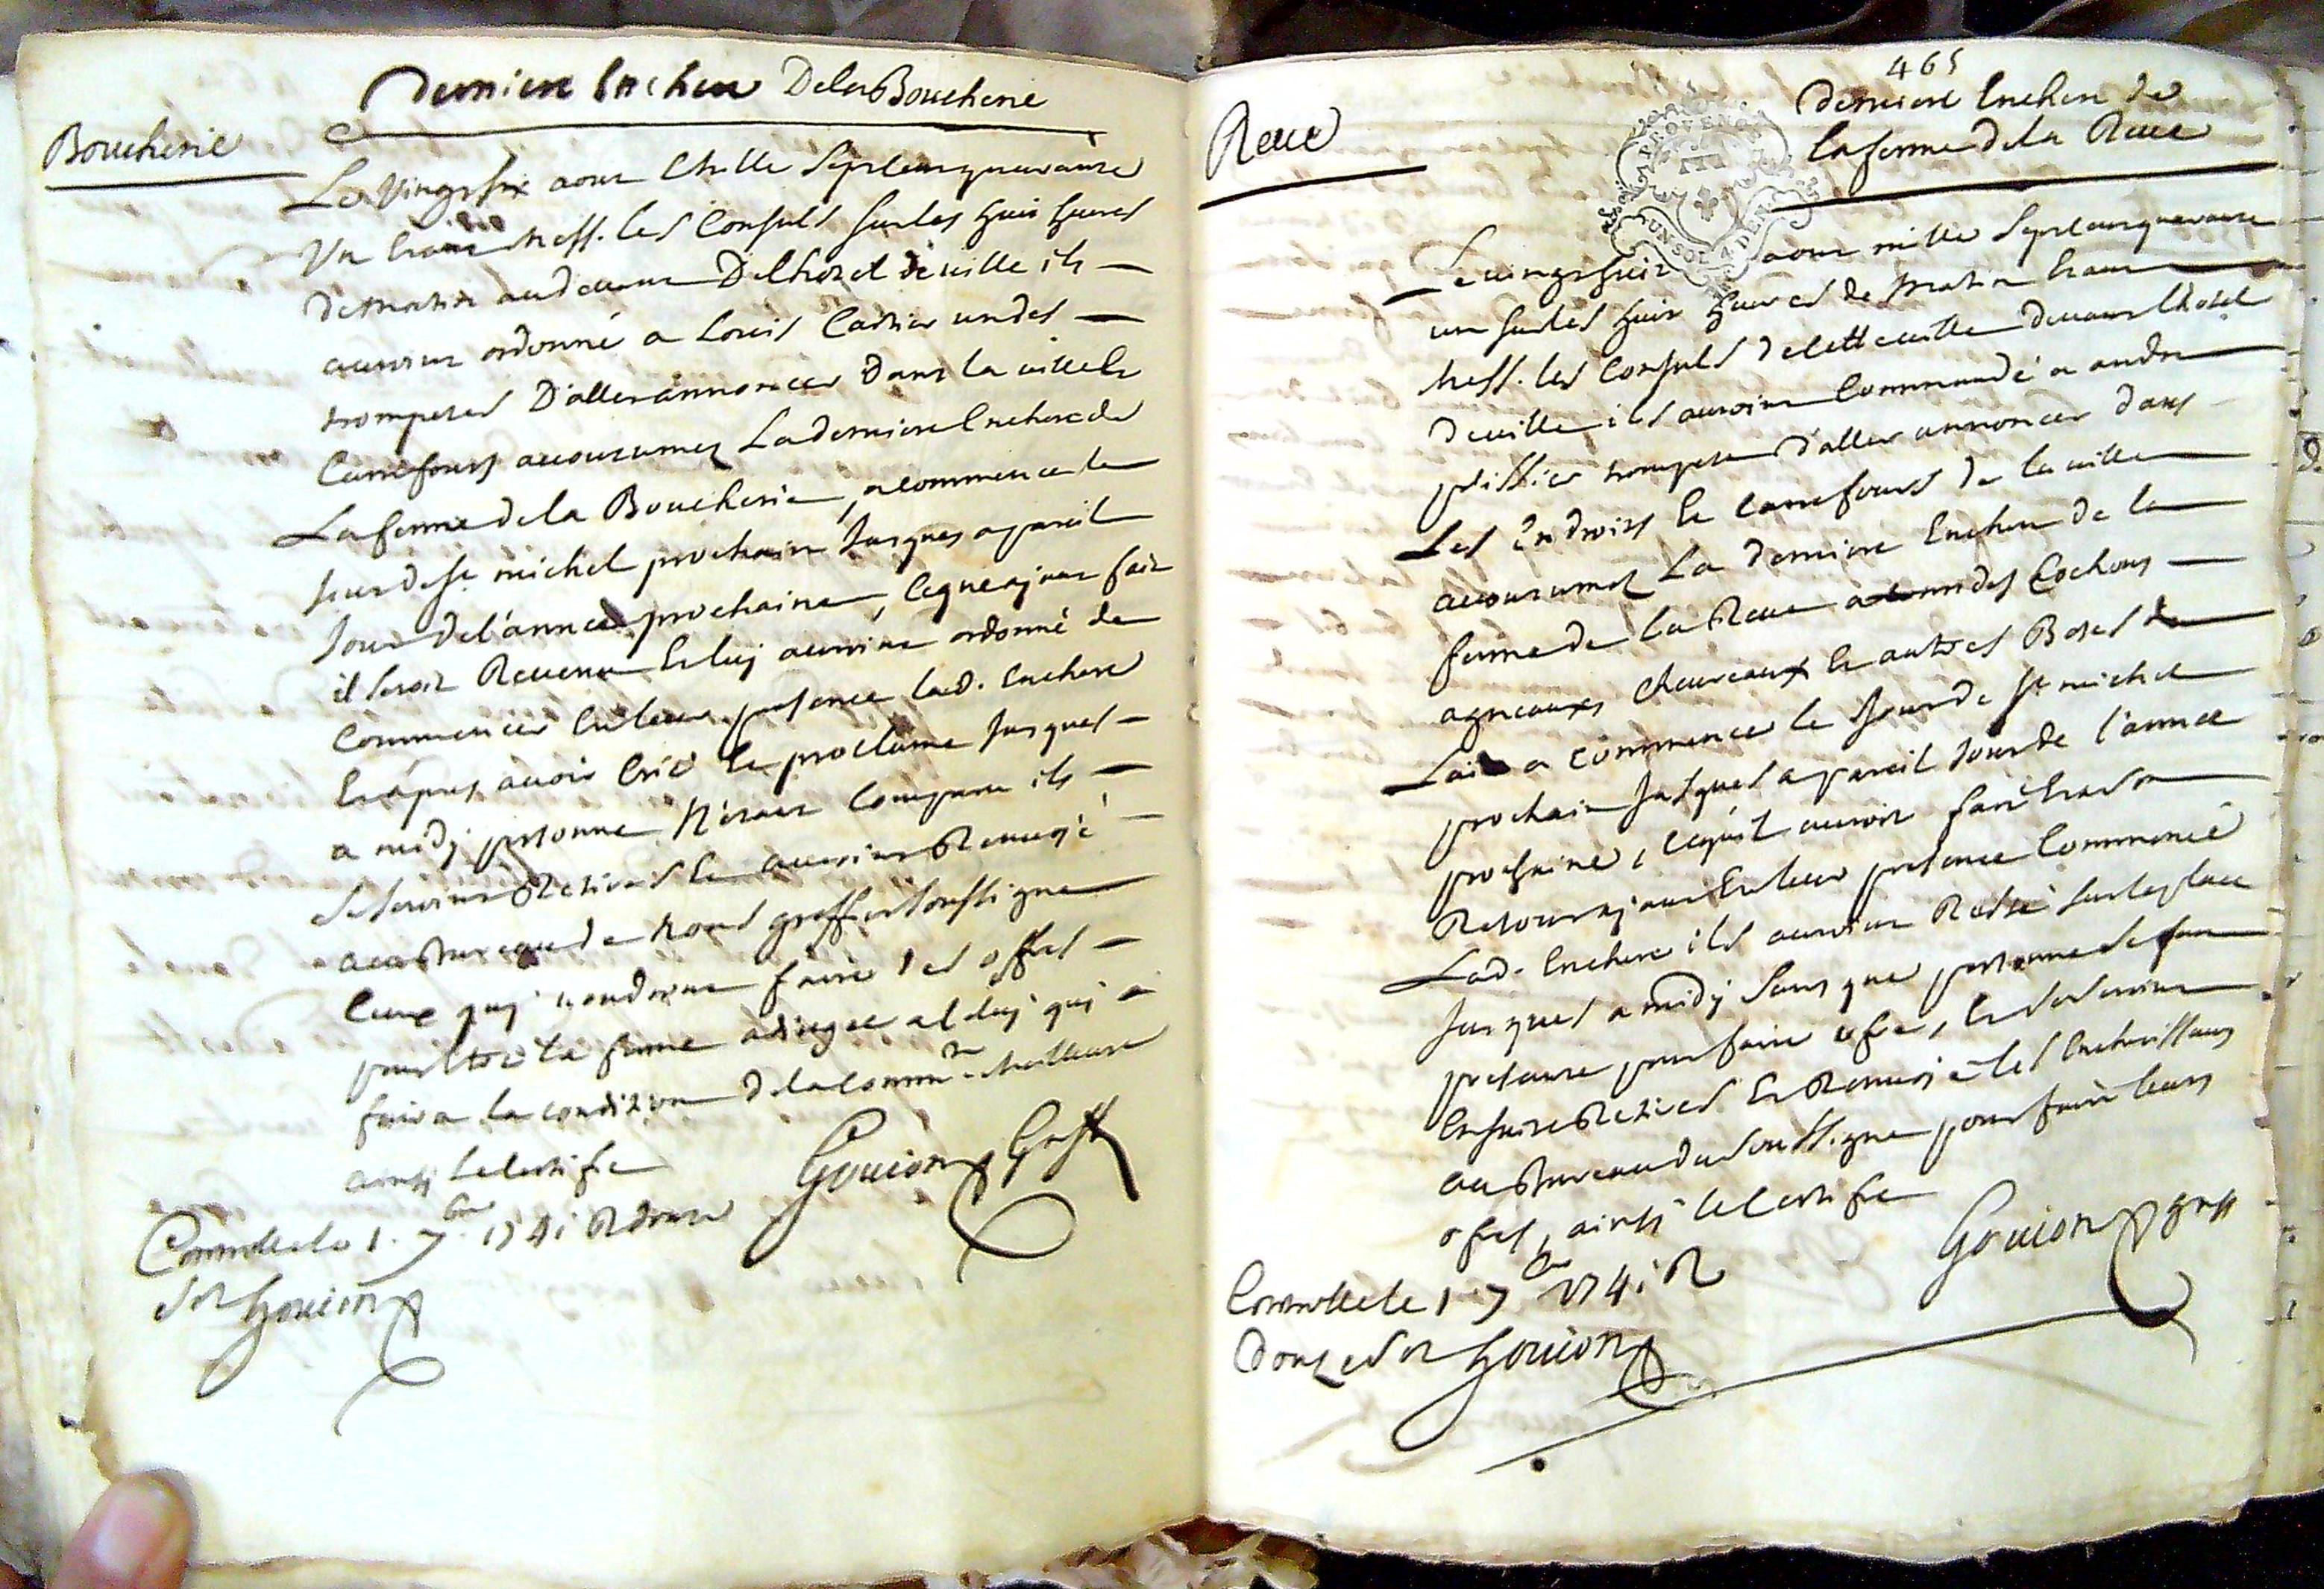 Derniere Enchere De la Boucherie
Boucherie
Le vingt six aoust Mille Sept cens quarante
Un Estant Mess. les Consuls sur les huit heures
de matin audevant De L'hotel de ville ils
auroint ordonné a Louis Cartier un des
trompetes D'aller annoncer Dans la ville et
Carrefours accoutumez La derniere Enchere de
La ferme de la Boucherie, a commencer le
jour de St. michel prochain Jusques a pareil
Jour de l'année prochaine, ce que ayant fait
il seroit Revenu et luy auroint ordonné de
Commencer En leur presence lad. Enchere
Et apres avoir Crié et proclamé Jusques
a midy personne N'etant Comparu ils
se seroint Retires et auroint Renvoyé
au Bureau de Nous greffier soussigné
Ceux quy voudront faire des offres
pour etre la ferme adjugée a celuy qui
faira la condition de la comm.te meilleure
ainsi le certifie
Gouion Greff
Controllé le 1. 7bre 1741 R douze
sols Gouion
465
Reve
Derniere Enchere de
la ferme de la Reve
PROVENCE
UN SOL 4 DEN
Le vingt huit aoust mille Sept cens quarante
un sur les huit heures de matin Estant
Mess. les Consuls de cette ville devant l'hotel
de ville ils auroint Commandé a andre
trompete d'aller annoncer dans
Les Endroits et carrefours de la ville
accoutumez La derniere Enchere de la
ferme de la Reve des Cochons
agneaux, Chevreaux et autres Betes de
Lait a commencer le Jour de St. michel
prochain Jusques a pareil Jour de l'année
prochaine, ce qu'il auroit fait Et a son
Retour ayant En leur presence Commencé
Lad. Enchere ils auroint Resté sur la place
Jusques a midy Sans que personne se feut
presenté pour faire ofre, Et se seroint
Ensuite Retires Et Renvoyé les Encherisseurs
au Bureau du soussigné pour faire leurs
ofres, ainsi le Certifie
Gouion greff
Controllé le 1. 7bre 1741 R
Douze sols Gouion